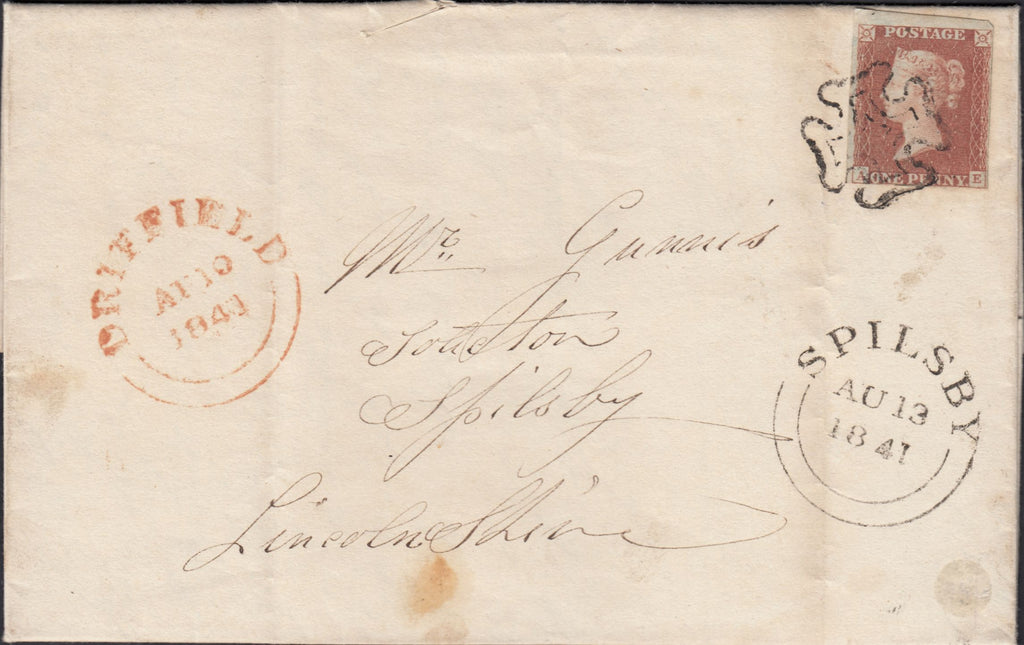 POSTAGE
A ONE PENNY E
DRIFFIELD
AU 10
1841
Mr. Gunnis
Soulston
Spilsby
LincolnShire
SPILSBY
AU 13
1841